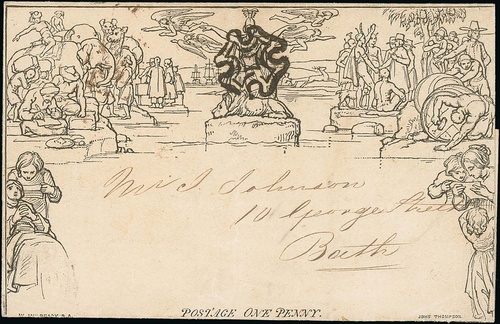 Mr J. Johnson
10 George Street
Bath
POSTAGE ONE PENNY.
W. MULREADY R.A.
JOHN THOMPSON